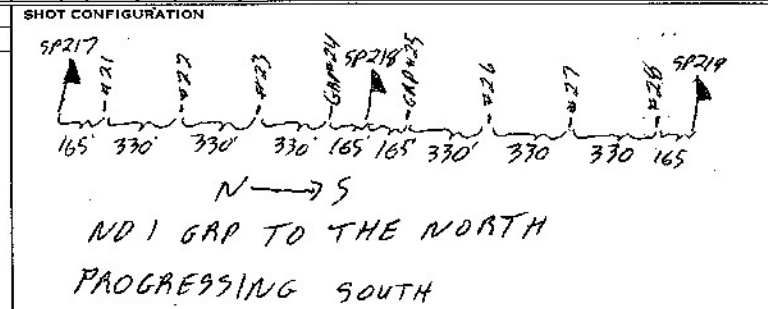 SHOT CONFIGURATION
SP217 #21 #22 #23 GAP#24 SP218 GAP#25 #26 #27 #28 SP219
165' 330' 330' 330' 165' 165' 330' 330 330 165
N → S
NO 1 GAP TO THE NORTH
PROGRESSING SOUTH